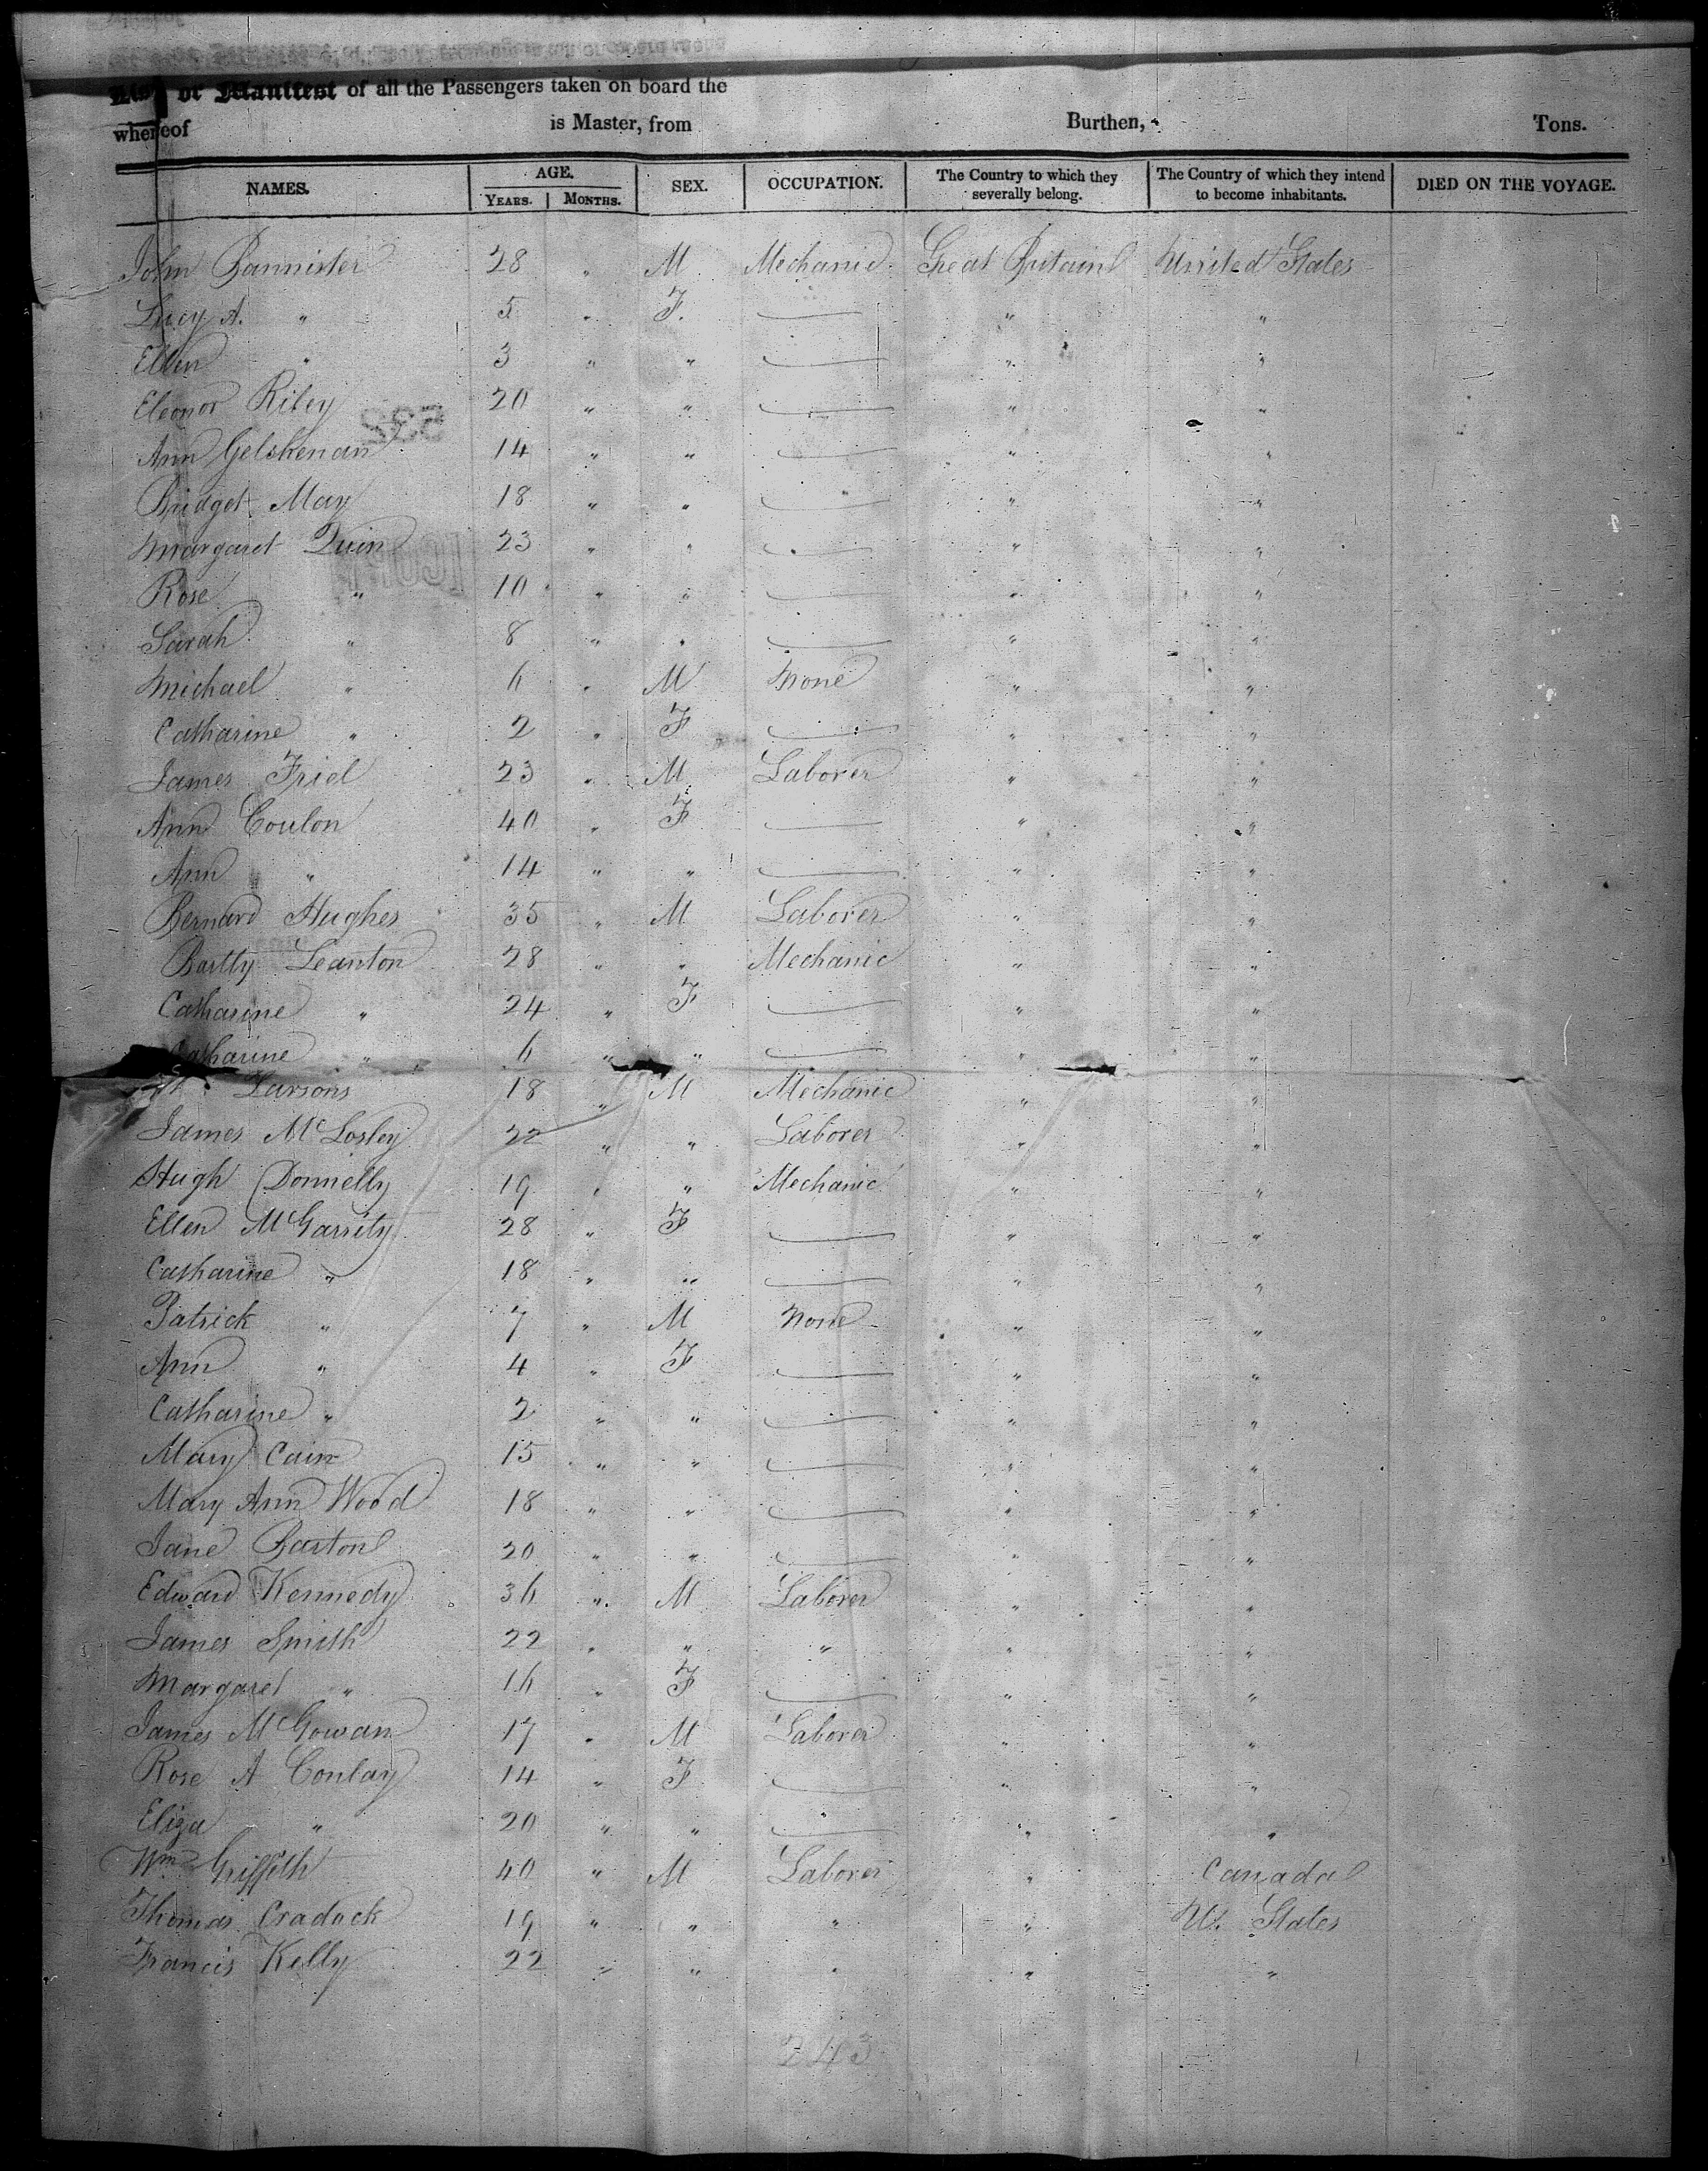 List or Manifest of all the Passengers taken on board the
whereof is Master, from Burthen, Tons.
NAMES. AGE. SEX. OCCUPATION. The Country to which they severally belong. The Country of which they intend to become inhabitants. DIED ON THE VOYAGE.
YEARS. MONTHS.
John Bannister 28 " M Mechanic Great Britain United States
Lucy A. " 5 " F. — " "
Ellen " 3 " " — " "
Eleonor Riley 20 " " — " "
532
Ann Gelshenan 14 " " — " "
Bridget May 18 " " — " "
Margaret Quin 23 " " — " "
Rose " 10 " " — " "
Sarah " 8 " " — " "
Michael " 6 " M None " "
Catharine " 2 " F — " "
James Friel 23 " M Laborer " "
Ann Conlon 40 " F — " "
Ann " 14 " " — " "
Bernard Hughes 35 " M Laborer " "
Bartty Leanton 28 " " Mechanic " "
Catharine " 24 " F — " "
Catharine " 6 " " — " "
Parsons 18 " M Mechanic " "
James McLosley 22 " " Laborer " "
Hugh Donnelly 19 " " Mechanic " "
Ellen McGarrity 28 " F — " "
Catharine " 18 " " — " "
Patrick " 7 " M None " "
Ann " 4 " F — " "
Catharine " 2 " " — " "
Mary Cain 15 " " — " "
Mary Ann Wood 18 " " — " "
Jane Barton 20 " " — " "
Edward Kennedy 36 " M Laborer " "
James Smith 22 " " " " "
Margaret " 16 " F — " "
James McGowan 17 " M Laborer " "
Rose A Conlay 14 " F — " "
Eliza " 20 " " — " "
Wm Griffeth 40 " M Laborer " Canada
Thomas Cradock 19 " " " " U. States
Francis Kelly 22 " " " " "
243